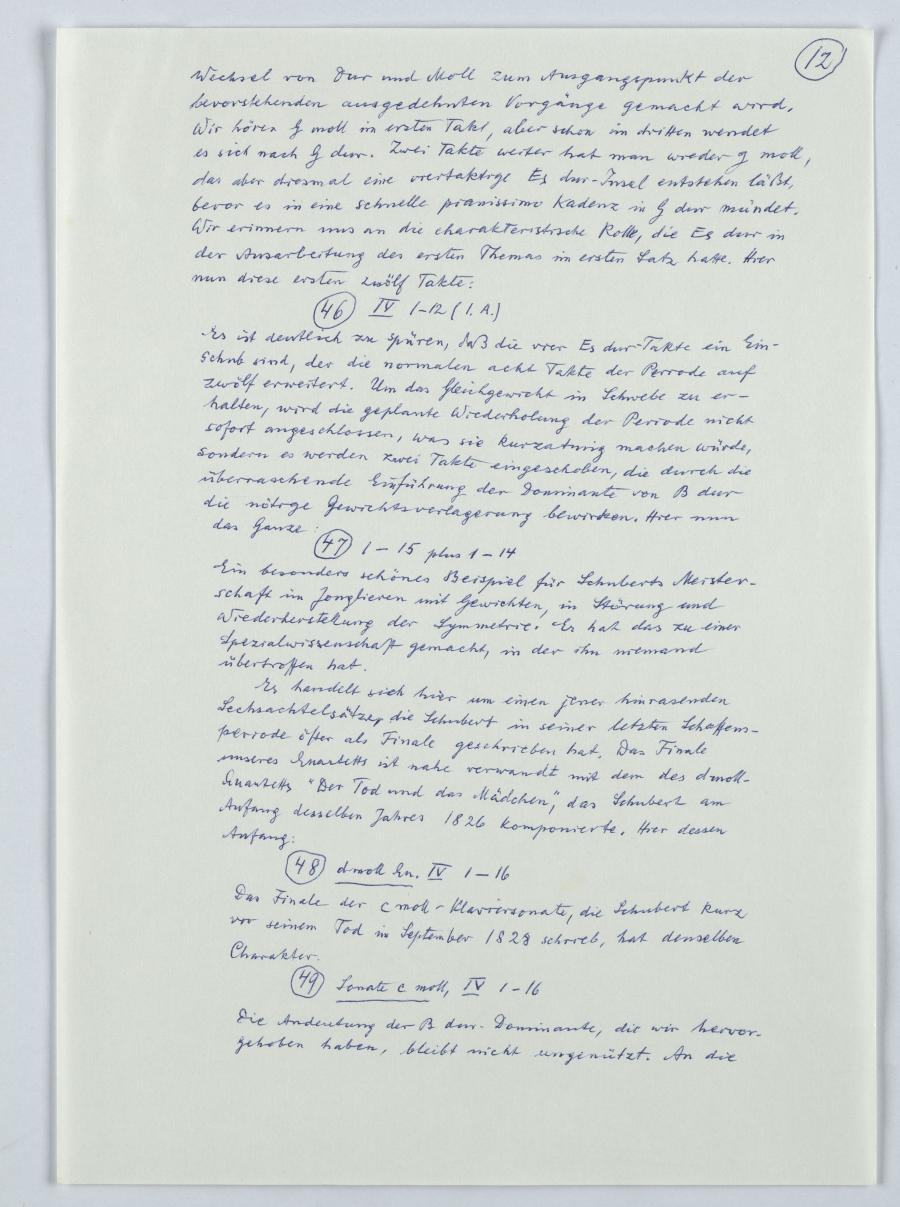 12
Wechsel von Dur und Moll zum Ausgangspunkt der
bevorstehenden ausgedehnten Vorgänge gemacht wird.
Wir hören G moll im ersten Takt, aber schon im dritten wendet
es sich nach G dur. Zwei Takte weiter hat man wieder g moll,
das aber diesmal eine viertaktige Es dur-Insel entstehen läßt,
bevor es in eine schnelle pianissimo Kadenz in G dur mündet.
Wir erinnern uns an die charakteristische Rolle, die Es dur in
der Ausarbeitung des ersten Themas im ersten Satz hatte. Hier
nun diese ersten zwölf Takte:
46 IV 1-12 (1. A.)
Es ist deutlich zu spüren, daß die vier Es dur-Takte ein Ein-
schub sind, der die normalen acht Takte der Periode auf
zwölf erweitert. Um das Gleichgewicht in Schwebe zu er-
halten, wird die geplante Wiederholung der Periode nicht
sofort angeschlossen, was sie kurzatmig machen würde,
sondern es werden zwei Takte eingeschoben, die durch die
überraschende Einführung der Dominante von B dur
die nötige Gewichtsverlagerung bewirken. Hier nun
das Ganze:
47 1-15 plus 1-14
Ein besonders schönes Beispiel für Schuberts Meister-
schaft im Jonglieren mit Gewichten, in Störung und
Wiederherstellung der Symmetrie. Er hat das zu einer
Spezialwissenschaft gemacht, in der ihn niemand
übertroffen hat.
Es handelt sich hier um einen jener hinrasenden
Sechsachtelsätze, die Schubert in seiner letzten Schaffens-
periode öfter als Finale geschrieben hat. Das Finale
unseres Quartetts ist nahe verwandt mit dem des dmoll-
Quartetts "Der Tod und das Mädchen", das Schubert am
Anfang desselben Jahres 1826 komponierte. Hier dessen
Anfang:
48 dmoll Qu. IV 1-16
Das Finale der c moll-Klaviersonate, die Schubert kurz
vor seinem Tod im September 1828 schrieb, hat denselben
Charakter.
49 Sonate c moll, IV 1-16
Die Andeutung der B dur-Dominante, die wir hervor-
gehoben haben, bleibt nicht ungenützt. An die